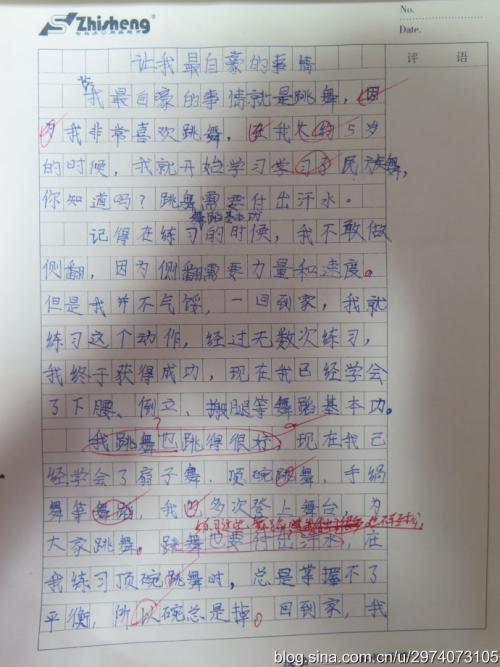 Zhisheng
No.
Date.
评 语
让我最自豪的事情
我最自豪的事情就是跳舞,因
为我非常喜欢跳舞,在我大约5岁
的时候,我就开始学习学习了民族舞,
你知道吗?跳舞需要付出汗水。
舞蹈基本功
记得在练习的时候,我不敢做
侧翻,因为侧翻需要力量和速度。
但是我并不气馁,一回到家,我就
练习这个动作,经过无数次练习,
我终于获得成功,现在我已经学会
了下腰、倒立、搬腿等舞蹈基本功。
我跳舞也跳得很好,现在我已
经学会了扇子舞、顶碗跳舞、手绢
舞等舞蹈,我也多次登上舞台,为
大家跳舞。跳舞也要付出汗水,在
我练习顶碗跳舞时,总是掌握不了
平衡,所以碗总是掉。回到家,我
blog.sina.com.cn/u/2974073105